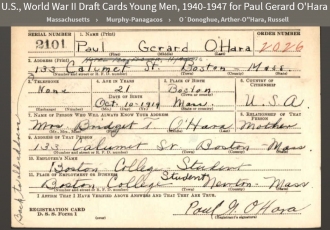 U.S., World War II Draft Cards Young Men, 1940-1947 for Paul Gerard O'Hara
Massachusetts › Murphy-Panagacos › O`Donoghue, Arther-O"Hara, Russell
SERIAL NUMBER 1. NAME (Print) ORDER NUMBER
2101 Paul Gerard O'Hara 2026
2. ADDRESS (Print)
133 Calumet St. Boston - Mass.
3. TELEPHONE 4. AGE IN YEARS 5. PLACE OF BIRTH 6. COUNTRY OF CITIZENSHIP
None 21 Boston
DATE OF BIRTH
Oct. 10 - 1919 Mass. U.S.A
7. NAME OF PERSON WHO WILL ALWAYS KNOW YOUR ADDRESS 8. RELATIONSHIP OF THAT PERSON
Mrs. Bridget O'Hara Mother
9. ADDRESS OF THAT PERSON
133 Calumet St. Boston - Mass
10. EMPLOYER'S NAME
Boston College Student
11. PLACE OF EMPLOYMENT OR BUSINESS
Boston College Student Newton - Mass
I AFFIRM THAT I HAVE VERIFIED ABOVE ANSWERS AND THAT THEY ARE TRUE.
REGISTRATION CARD
D. S. S. Form 1
Paul G. O'Hara